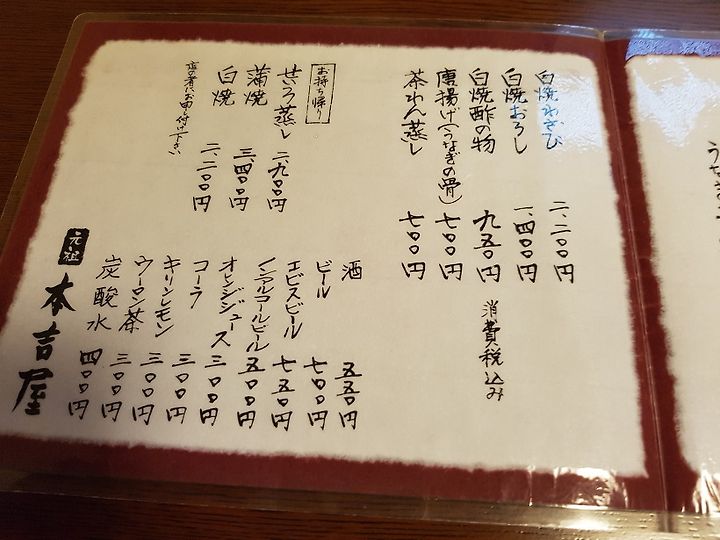 白焼わさび 二、二〇〇円
白焼おろし 一、四〇〇円
白焼酢の物 九五〇円
唐揚げ(うなぎの骨) 七〇〇円
茶わん蒸し 七〇〇円
消費税込み
お持ち帰り
せいろ蒸し 二、九〇〇円
蒲焼 三、四〇〇円
白焼 二、二〇〇円
店の者にお申し付け下さい
酒 五五〇円
ビール 七〇〇円
エビスビール 七五〇円
ノンアルコールビール 五〇〇円
オレンジジュース 三〇〇円
コーラ 三〇〇円
キリンレモン 三〇〇円
ウーロン茶 三〇〇円
炭酸水 四〇〇円
元祖 本吉屋